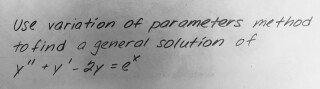 Use variation of parameters method
to find a general solution of
y" + y' - 2y = eˣ